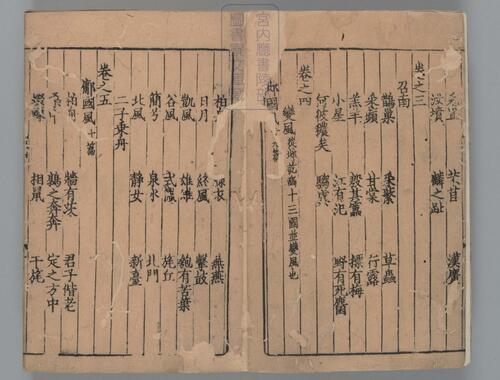 宮内廳書陵部
兔罝 芣苢 漢廣
汝墳 麟之趾
卷之三
召南
鵲巢 采蘩 草蟲
采蘋 甘棠 行露
羔羊 殷其靁 摽有梅
小星 江有汜 野有死麕
何彼襛矣 騶虞
卷之四
邶國風十九篇
變風從邶訖豳十三國並變風也
柏 綠衣 燕燕
日月 終風 擊鼓
凱風 雄雉 匏有苦葉
谷風 式微 旄丘
簡兮 泉水 北門
北風 靜女 新臺
二子乘舟
卷之五
鄘國風十篇
柏舟 牆有茨 君子偕老
鶉之奔奔 定之方中
蝃蝀 相鼠 干旄